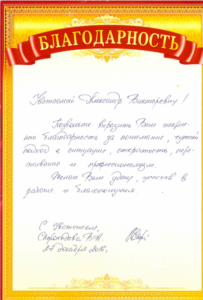 БЛАГОДАРНОСТЬ
Уважаемый Александр Викторович!
Позвольте выразить Вам искрен-
нюю благодарность за понимание, чуткий
подход к ситуации, открытость, пере-
живание и профессионализм.
Желаю Вам удачи, успехов в
работе и благополучия.
С уважением,
27 декабря